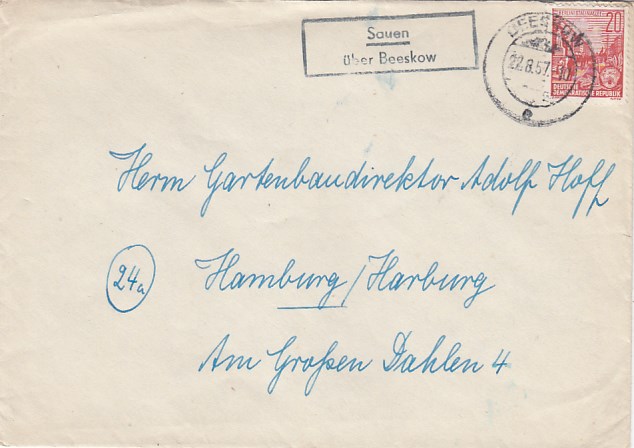 Sauen
über Beeskow
BEESKOW
22.8.57
e
20
DEUTSCHE
DEMOKRATISCHE REPUBLIK
Herrn Gartenbaudirektor Adolf Hoff
24a
Hamburg/Harburg
Am Großen Dahlen 4